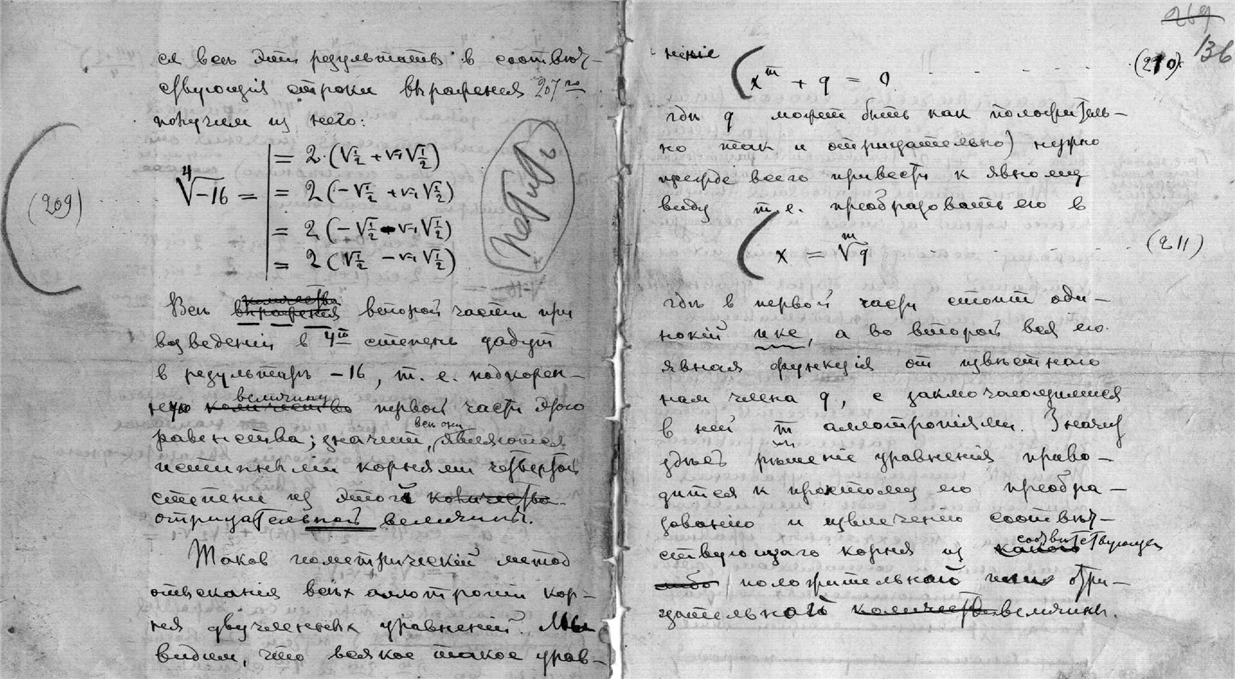 ся всѣ эти результаты в соотвѣт-
ствующія строки выраженія 207го
получим из него:
(209)
⁴√-16 =
= 2 (√½ + √-1 √½)
= 2 (-√½ + √-1 √½)
= 2 (-√½ - √-1 √½)
= 2 (√½ - √-1 √½)
Петитъ
количества
Всѣ выраженія второй части при
возведеніи в 4ю степень дадут
в результатѣ -16, т. е. подкорен-
величину
ную количество первой части этого
всѣ они
равенства; значит, являются
истинными корнями четвертой
степени из этой количества
отрицательной величины.
Таков геометрическій метод
отысканія всѣх аллотропій кор-
ня двучленных уравненій. Мы
видим, что всякое такое урав-
269
136
неніе
xᵐ + q = 0 (210)
гдѣ q может быть как положитель-
но так и отрицательно) нужно
прежде всего привести к явному
виду т. е. преобразовать его в
x = ᵐ√q (211)
гдѣ в первой части стоит оди-
нокій икс, а во второй вся его
явная функція от извѣстнаго
нам члена q, с заключающимися
в ней m аллотропіями. Значит
здѣсь рѣшеніе уравненія приво-
дится к простому его преобра-
зованію и извлеченію соотвѣт-
соотвѣтствующей
ствующаго корня из какого
либо положительной или отри-
цательной количества величины.